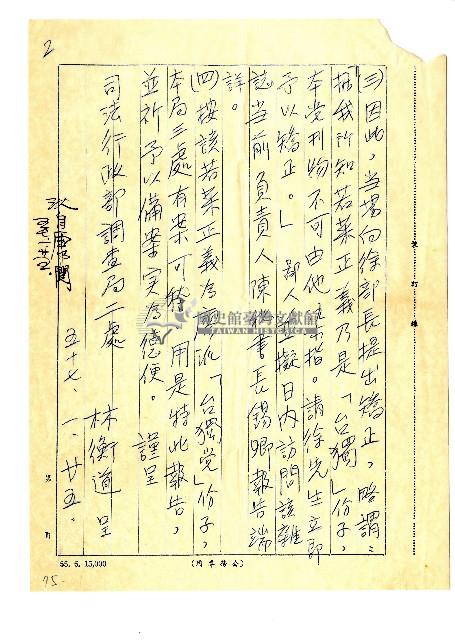 2
(三)因此，當場向徐部長提出矯正，略謂：
「據我所知若菜正義乃是「台獨」份子，
本党刊物不可由他主持。請徐先生立即
予以矯正。」鄙人並擬日內訪問該雜
誌當前負責人陳秘書長錫卿報告端
詳。
(四)按該若菜正義為「台獨党」份子，
本局三處有案可稽，用是特此報告，
並祈予以備案，實為德便。謹呈
司法行政部調查局二處
林衡道呈
五十七、一、廿五、
國史館臺灣文獻館
TAIWAN HISTORICA
裝訂線
第 頁
55.6.15,000
(公務事用)
75-